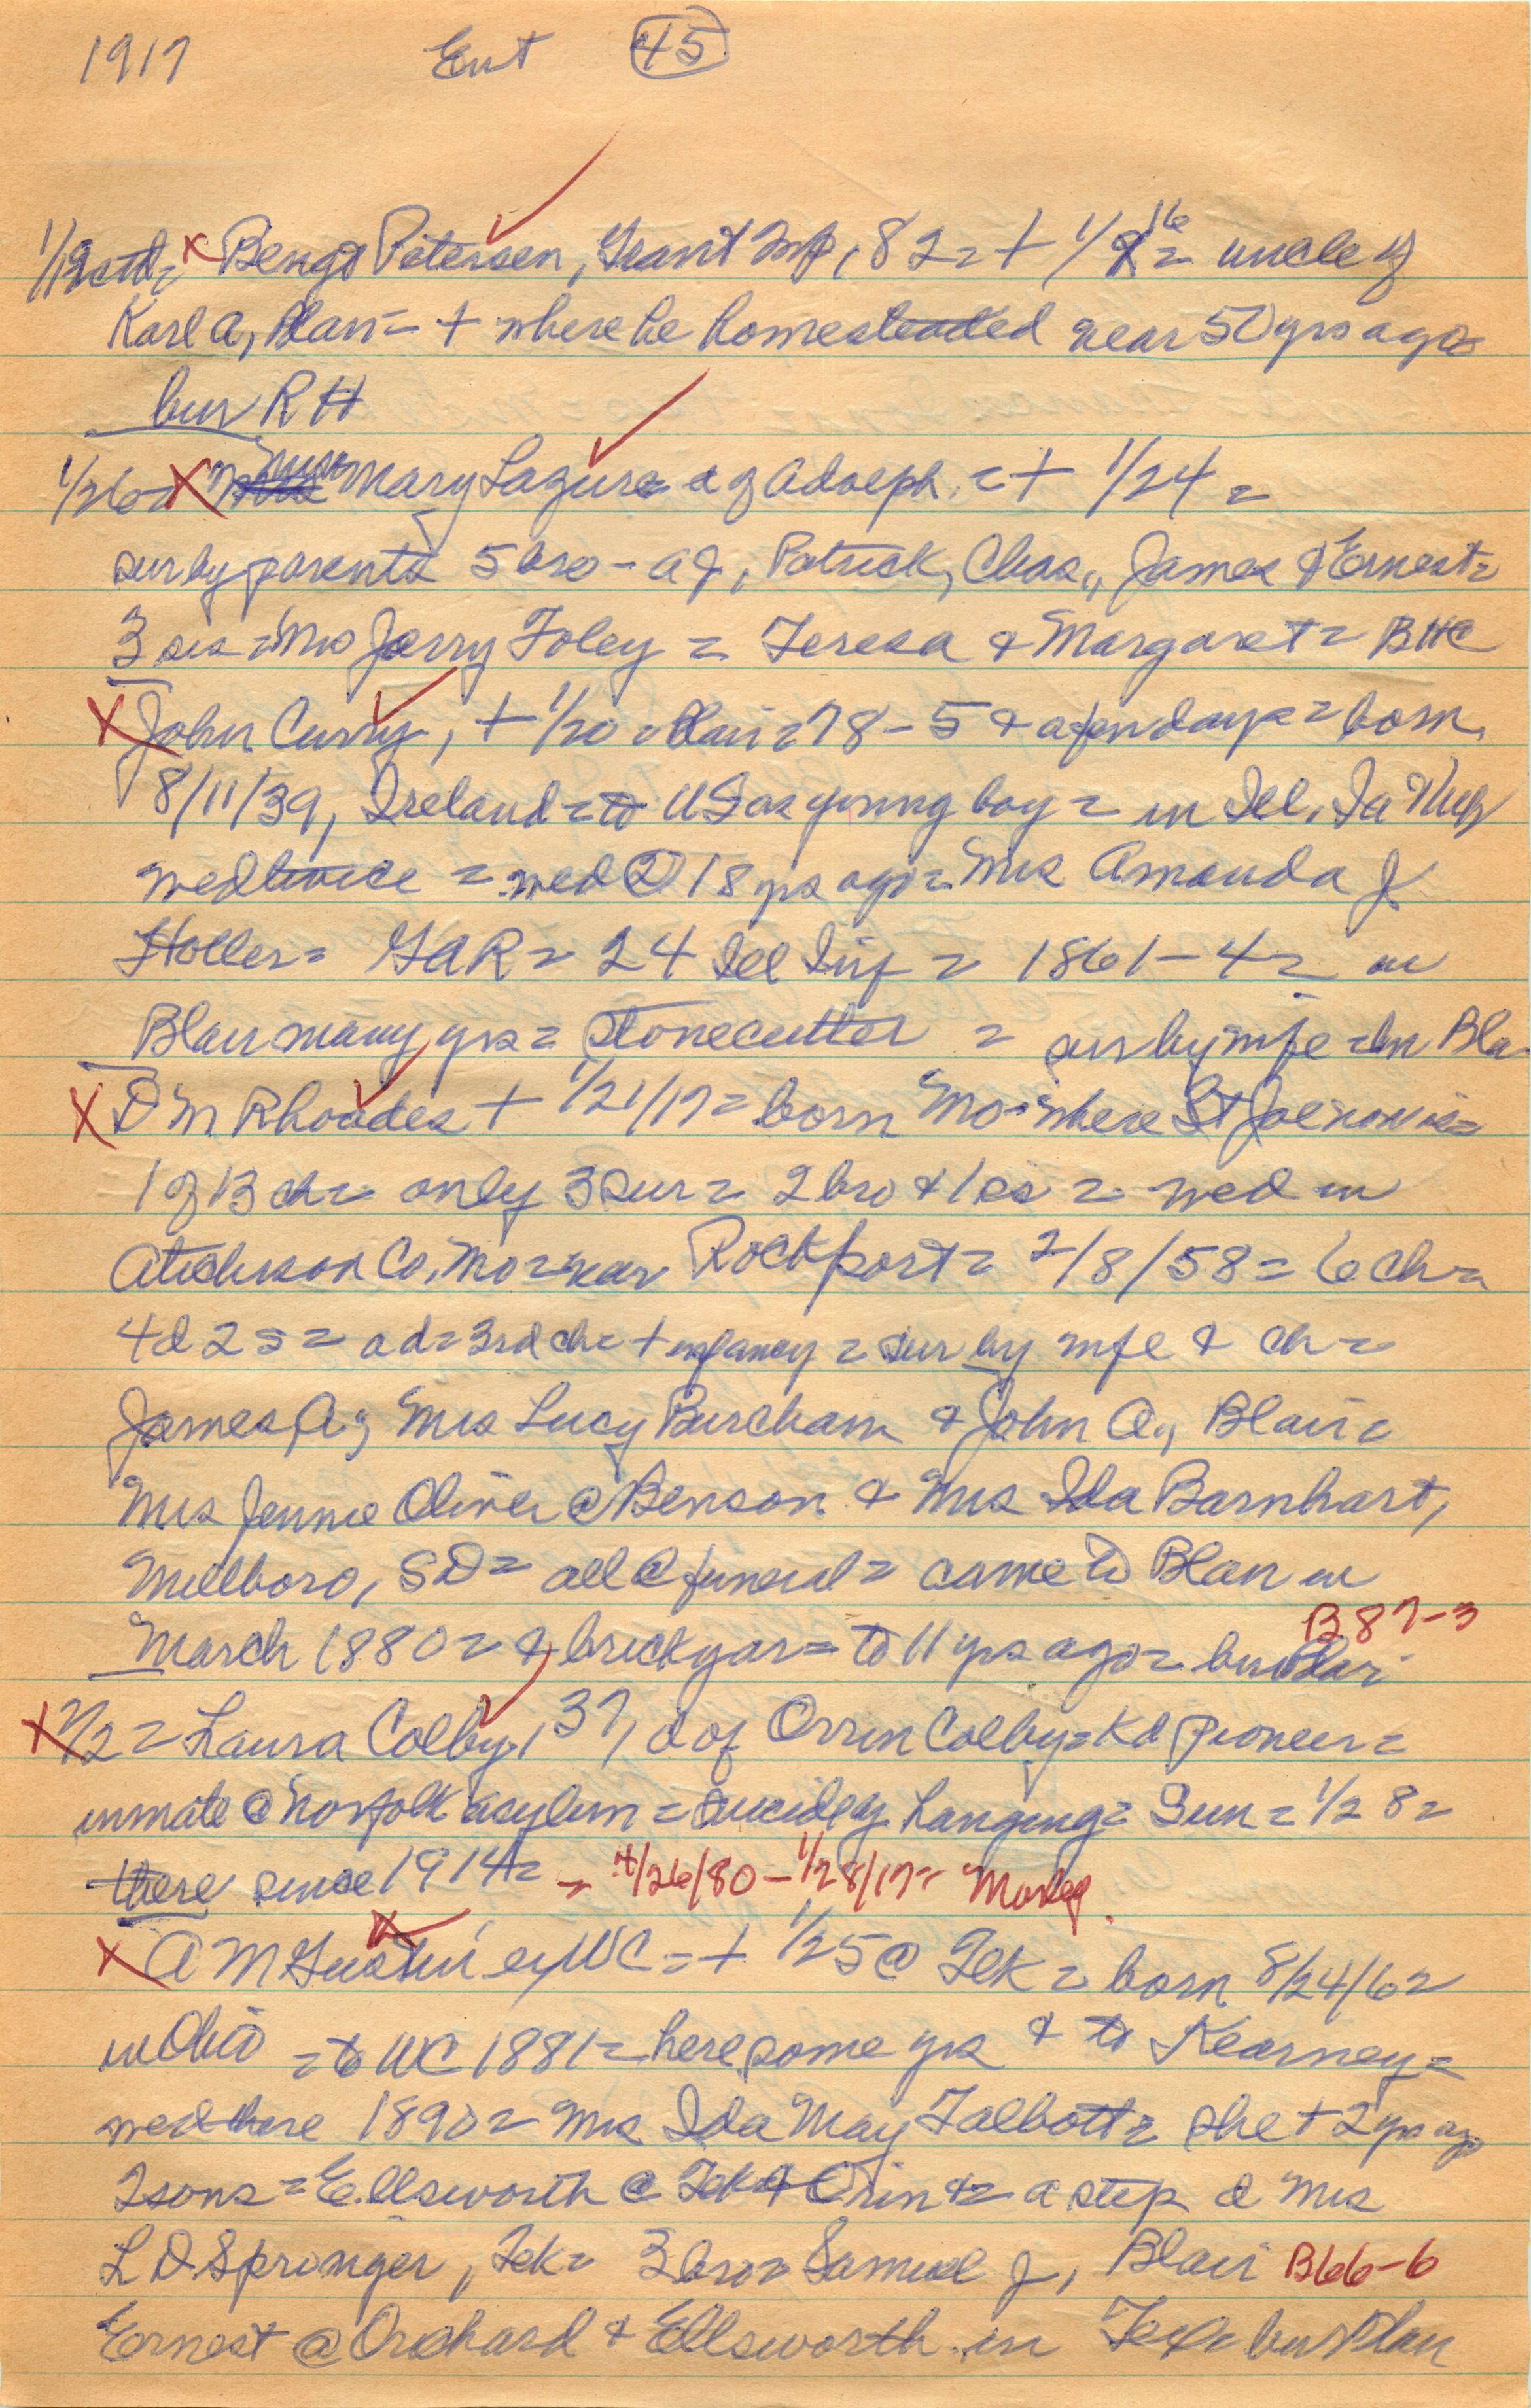 1917 Ent 45
x Bengt Petersen, Grant Twp, 82 = + 1/16 = uncle of
Karl A, Blair = + where he homesteaded near 50 yrs ago =
bur R H
1/26 = x Miss Mary Lazure = d of Adolph = + 1/24 =
sur by parents 5 bro - A J, Patrick, Chas., James & Ernest =
3 sis = Mrs Jerry Foley = Teresa & Margaret = BHC
x John Curry, + 1/20 = Blair = 78 - 5 & a few days = born
8/11/39, Ireland = to US as young boy = in Ill, Ia & Neb
wed twice = wed ② 18 yrs ago = Mrs Amanda J
Holler = GAR = 24 Ill Inf = 1861 - 4 = in
Blair many yrs = stonecutter = sur by wife = bur Bla
x D M Rhoades + 1/21/17 = born Mo = where St Joe now is =
1 of 13 ch = only 3 sur = 2 bro & 1 sis = wed in
Atchison Co, Mo = near Rockport = 2/8/58 = 6 ch =
4 d 2 s = a d = 3rd ch = + infancy = sur by wife & ch =
James A; Mrs Lucy Burcham & John A., Blair =
Mrs Jennie Oliver @ Benson & Mrs Ida Barnhart,
Millboro, SD = all @ funeral = came to Blair in
B87-3
March 1880 = & brickyar = to 11 yrs ago = bur Blair
x 2/2 = Laura Colby, 37, d of Orrin Colby = Kd pioneer =
inmate @ Norfolk asylum = suicide by hanging = Sun = 1/28 =
there since 1914 = = 4/26/80 - 1/28/17 =
x A M Gustin ex WC = + 1/25 @ Tek = born 8/24/62
in Ohio = to WC 1881 = here some yrs & to Kearney =
wed there 1890 = Mrs Ida May Talbott = she + 2 yrs ago
2 sons = Ellsworth @ Tek & Orin = a step d Mrs
L D Springer, Tek = 3 bro = Samuel J, Blair B66-6
Ernest @ Orchard & Ellsworth in Tex = bur Blair